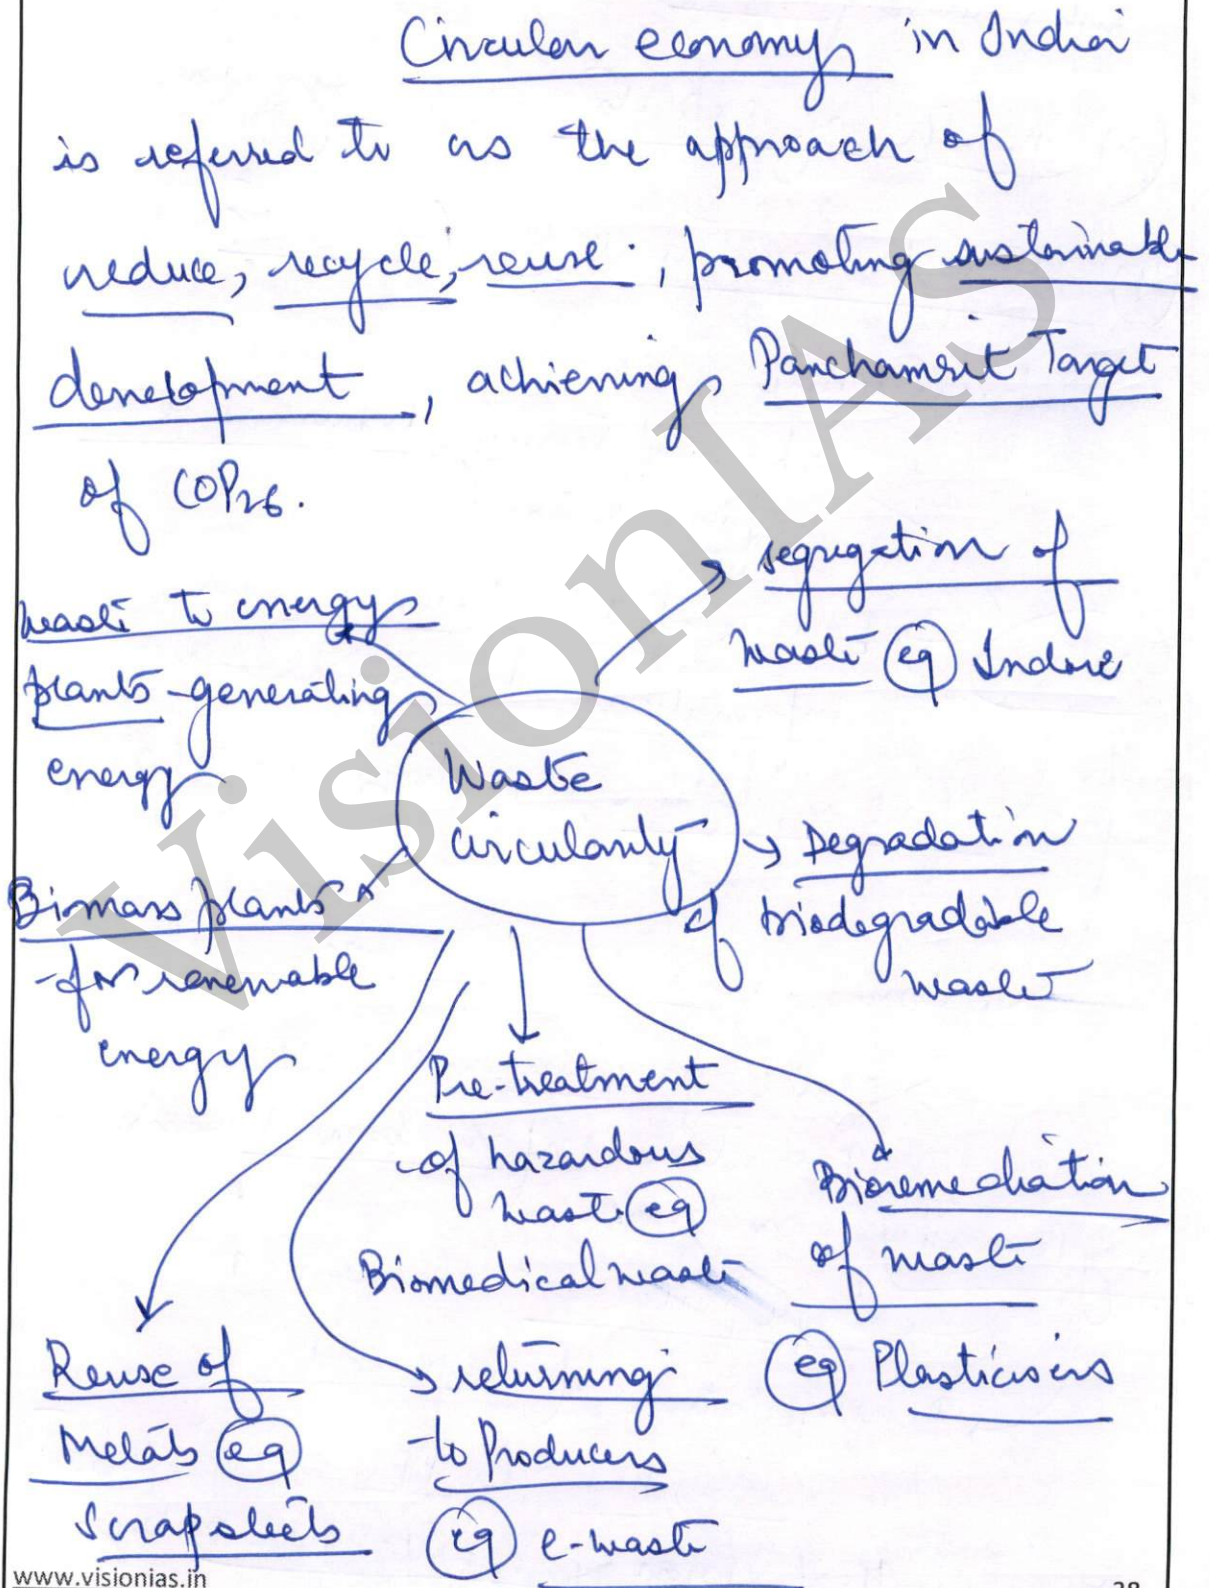 Circular economy in India
is referred to as the approach of
reduce, recycle, reuse, promoting sustainable
development, achieving Panchamrit Target
of COP26.
waste to energy
plants - generating
energy
segregation of
waste eg Indore
Waste
circularity
Biomass plants
- for renewable
energy
→ Degradation
of biodegradable
waste
Pre-treatment
of hazardous
waste eg
Biomedical waste
Bioremediation
of waste
eg Plasticisers
Reuse of
Metals eg
Scrap
returning
to Producers
eg e-waste
VisionIAS
www.visionias.in